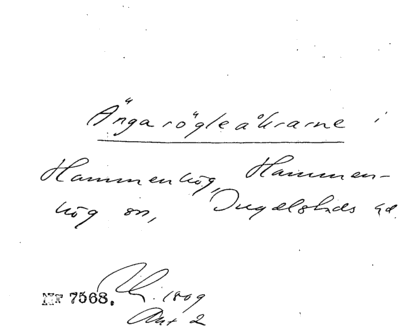 Ängarögleåkrarne i
Hammenhög, Hammen-
hög sn, Ingelstads hd.
Nr 7568. 1809
Akt 2